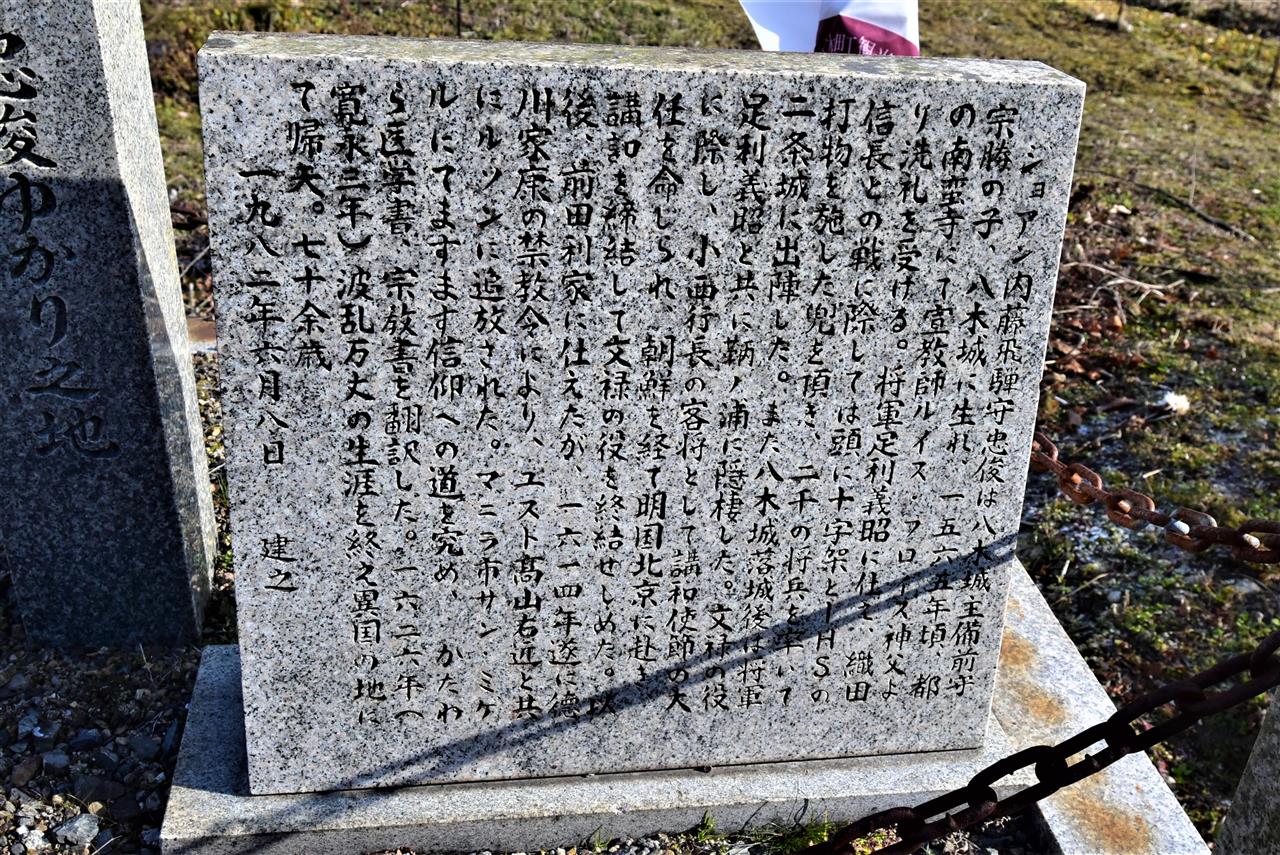 ジョアン内藤飛騨守忠俊は八木城主備前守
宗勝の子、八木城に生れ、一五六五年頃、都
の南蛮寺にて宣教師ルイス・フロイス神父よ
り洗礼を受ける。将軍足利義昭に仕え、織田
信長との戦に際しては頭に十字架とIHSの
打物を施した兜を頂き、二千の将兵を率いて
二条城に出陣した。また八木城落城後は将軍
足利義昭と共に鞆ノ浦に隠棲した。文禄の役
に際し、小西行長の客将として講和使節の大
任を命じられ、朝鮮を経て明国北京に赴き
講和を締結して文禄の役を終結せしめた。以
後、前田利家に仕えたが、一六一四年遂に徳
川家康の禁教令により、ユスト髙山右近と共
にルソンに追放された。マニラ市サン・ミゲ
ルにてますます信仰への道を究め、かたわ
ら医学書、宗教書を翻訳した。一六二六年(
寛永三年)波乱万丈の生涯を終え異国の地に
て帰天。七十余歳
一九八二年六月八日 建之
忠俊ゆかり之地